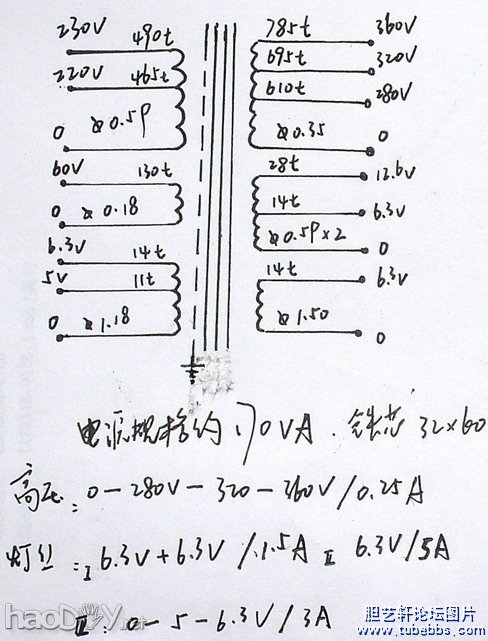 230V 490t
220V 465t
0 ⌀0.59
60V 130t
0 ⌀0.18
6.3V 14t
5V 11t
0 ⌀1.18
785t 360V
695t 320V
610t 280V
⌀0.35 0
28t 12.6V
14t 6.3V
⌀0.59×2 0
14t 6.3V
⌀1.50 0
电源规格约170VA. 铁芯32×60
高压: 0—280V—320—360V/0.25A
灯丝: I 6.3V+6.3V/1.5A II 6.3V/5A
III: 0—5—6.3V/3A
haoDIY.net
胆艺轩论坛图片
www.tubebbs.com